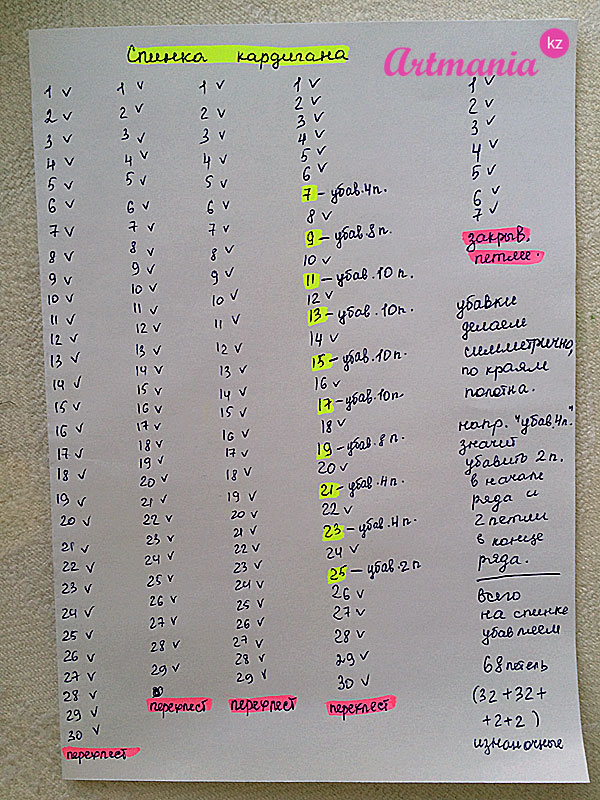 Artmania kz
Спинка кардигана
1 ✓
2 ✓
3 ✓
4 ✓
5 ✓
6 ✓
7 ✓
8 ✓
9 ✓
10 ✓
11 ✓
12 ✓
13 ✓
14 ✓
15 ✓
16 ✓
17 ✓
18 ✓
19 ✓
20 ✓
21 ✓
22 ✓
23 ✓
24 ✓
25 ✓
26 ✓
27 ✓
28 ✓
29 ✓
30 ✓
перехлест
1 ✓
2 ✓
3 ✓
4 ✓
5 ✓
6 ✓
7 ✓
8 ✓
9 ✓
10 ✓
11 ✓
12 ✓
13 ✓
14 ✓
15 ✓
16 ✓
17 ✓
18 ✓
19 ✓
20 ✓
21 ✓
22 ✓
23 ✓
24 ✓
25 ✓
26 ✓
27 ✓
28 ✓
29 ✓
перехлест
1 ✓
2 ✓
3 ✓
4 ✓
5 ✓
6 ✓
7 ✓
8 ✓
9 ✓
10 ✓
11 ✓
12 ✓
13 ✓
14 ✓
15 ✓
16 ✓
17 ✓
18 ✓
19 ✓
20 ✓
21 ✓
22 ✓
23 ✓
24 ✓
25 ✓
26 ✓
27 ✓
28 ✓
29 ✓
перехлест
1 ✓
2 ✓
3 ✓
4 ✓
5 ✓
6 ✓
7 – убав. 4 п.
8 ✓
9 – убав. 8 п.
10 ✓
11 – убав. 10 п.
12 ✓
13 – убав. 10 п.
14 ✓
15 – убав. 10 п.
16 ✓
17 – убав. 10 п.
18 ✓
19 – убав. 8 п.
20 ✓
21 – убав. 4 п.
22 ✓
23 – убав. 4 п.
24 ✓
25 – убав. 2 п
26 ✓
27 ✓
28 ✓
29 ✓
30 ✓
перехлест
1 ✓
2 ✓
3 ✓
4 ✓
5 ✓
6 ✓
7 ✓
закрыв.
петли.
убавки
делаем
симметрично,
по краям
полотна.
напр. "убав. 4 п."
значит
убавить 2 п.
в начале
ряда и
2 петли
в конце
ряда.
всего
на спинке
убавляем
68 петель
(32 + 32 +
+ 2 + 2)
изнаночные